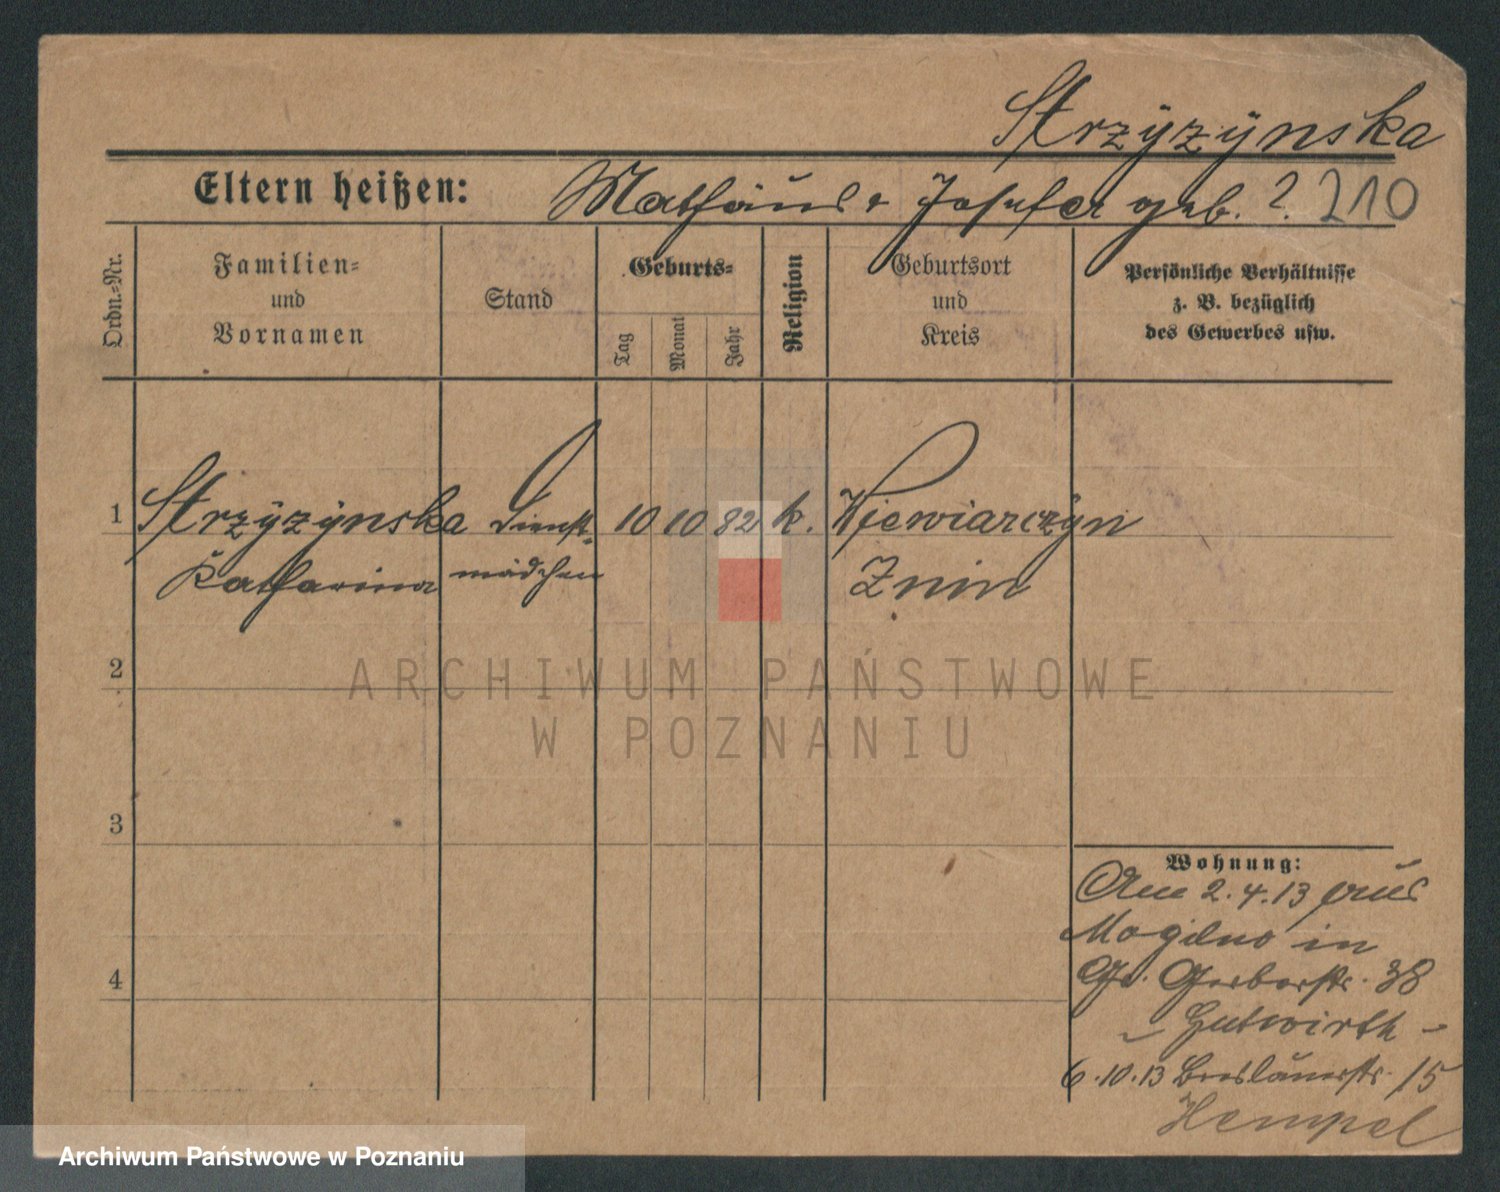 Strzÿzÿnska
Eltern heißen: Mathäus & Josefa geb. ?. 210
Ordn.-Nr.
Familien-
und
Vornamen
Stand
Geburts-
Tag
Monat
Jahr
Religion
Geburtsort
und
Kreis
Persönliche Verhältnisse
z. B. bezüglich
des Gewerbes usw.
1 Strzÿzÿnska Dienst- 10 10 82 k. Wiewiarczÿn
Katharina mädchen Znin
2
3
4
Wohnung:
Am 2.4.13 aus
Mogilno in
Gr. Gerberstr. 38
Gutwirth
6.10.13 Breslauerstr. 15
Hempel
ARCHIWUM PAŃSTWOWE
W POZNANIU
Archiwum Państwowe w Poznaniu